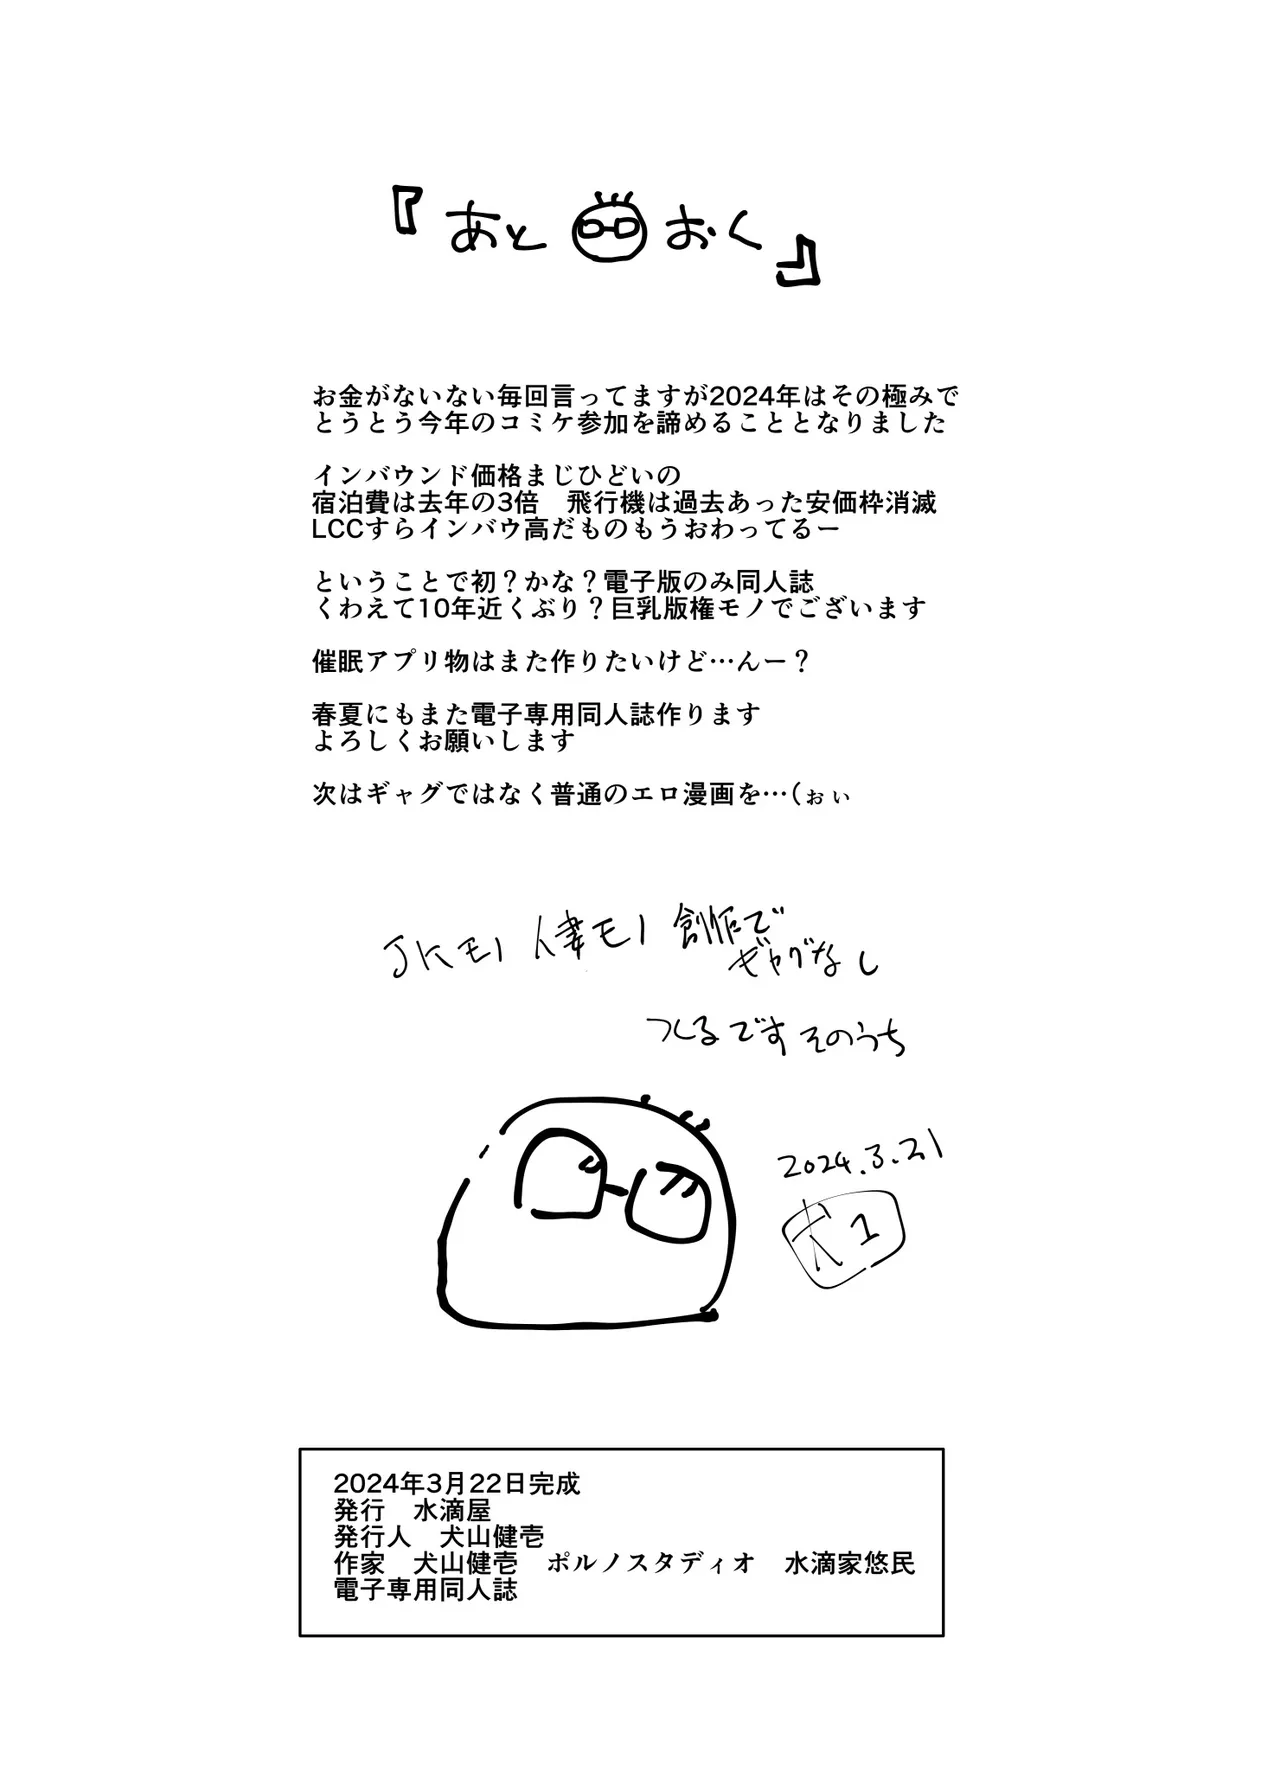 『あと おく』
お金がないない毎回言ってますが2024年はその極みで
とうとう今年のコミケ参加を諦めることとなりました
インバウンド価格まじひどいの
宿泊費は去年の3倍　飛行機は過去あった安価枠消滅
LCCすらインバウ高だものもうおわってるー
ということで初？かな？電子版のみ同人誌
くわえて10年近くぶり？巨乳版権モノでございます
催眠アプリ物はまた作りたいけど…んー？
春夏にもまた電子専用同人誌作ります
よろしくお願いします
次はギャグではなく普通のエロ漫画を…(ぉぃ
JKモノ 人妻モノ 創作で
ギャグなし
つくるです そのうち
2024.3.21
犬1
2024年3月22日完成
発行　水滴屋
発行人　犬山健壱
作家　犬山健壱　ポルノスタディオ　水滴家悠民
電子専用同人誌